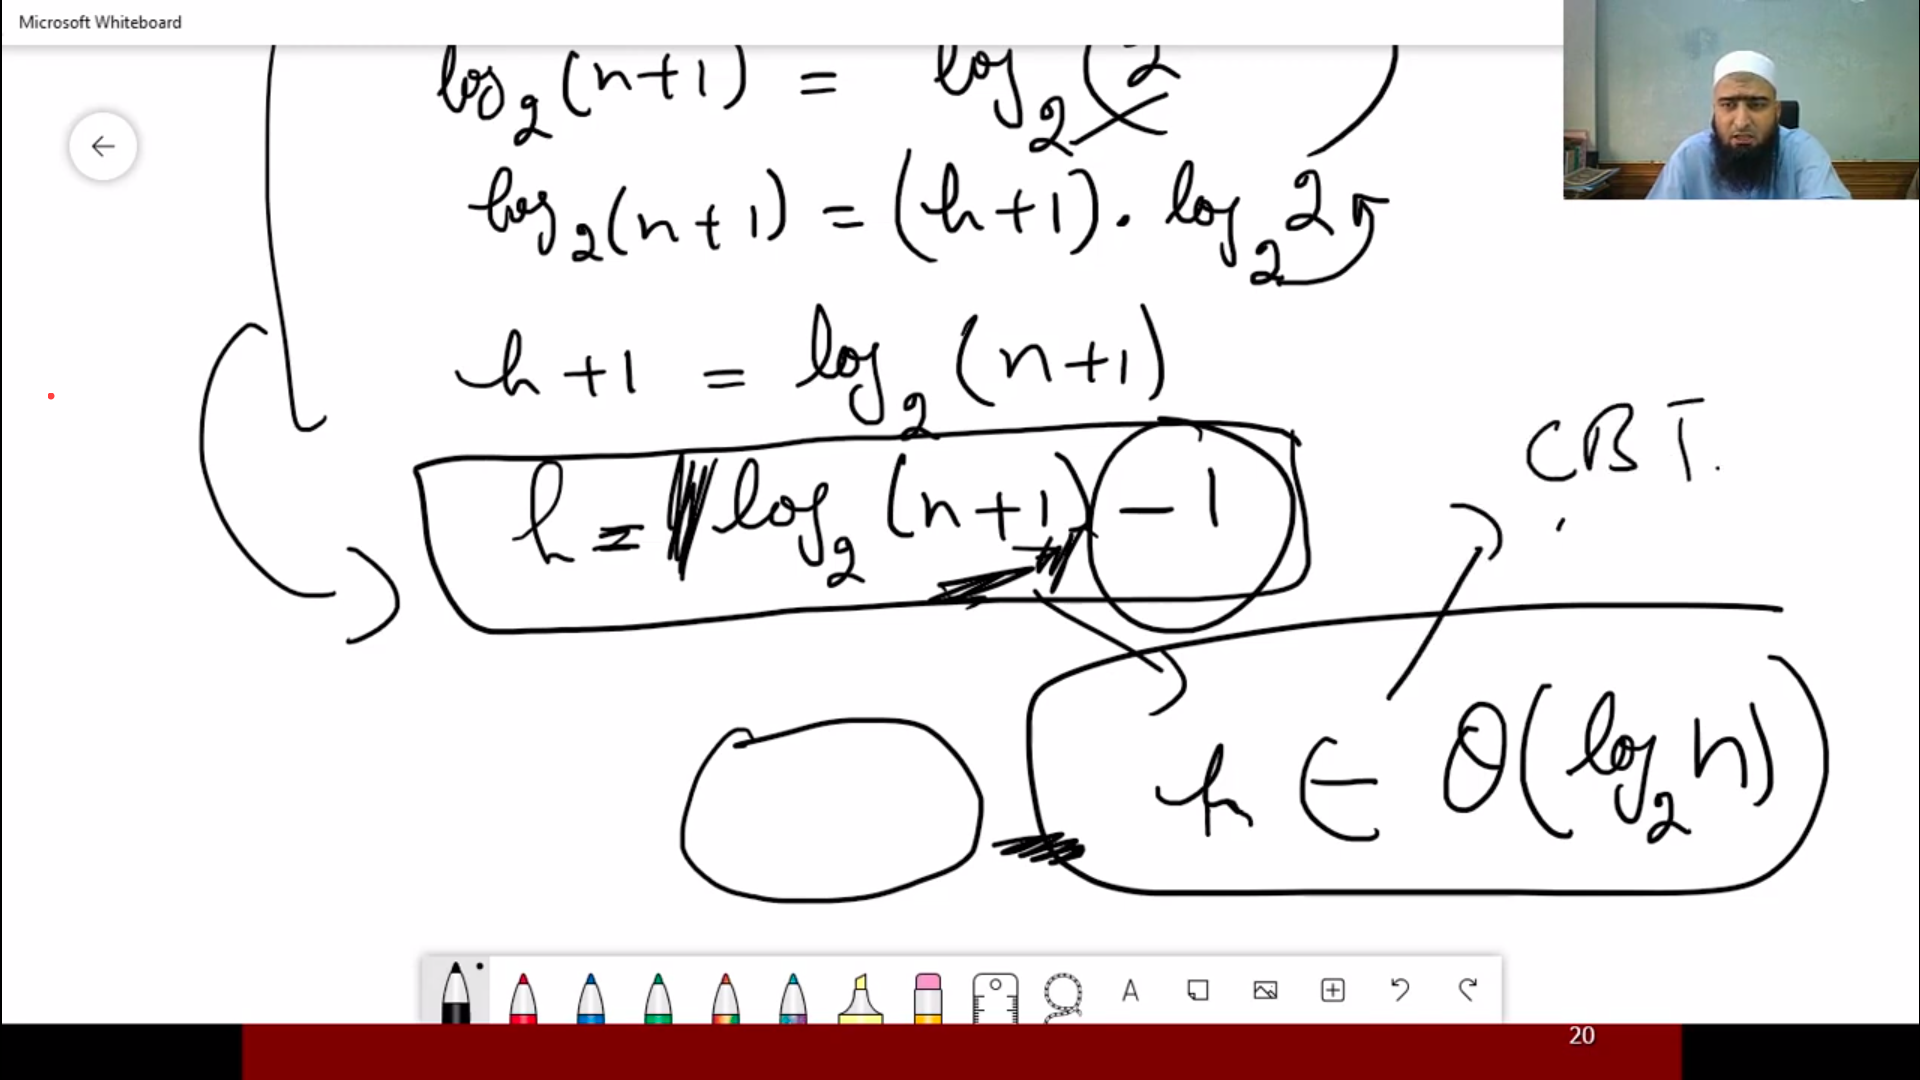 Microsoft Whiteboard
log₂(n+1) = log₂(2
log₂(n+1) = (h+1). log₂2
h+1 = log₂(n+1)
h = log₂(n+1) -1
CBT.
h ∈ θ(log₂n)
A
20